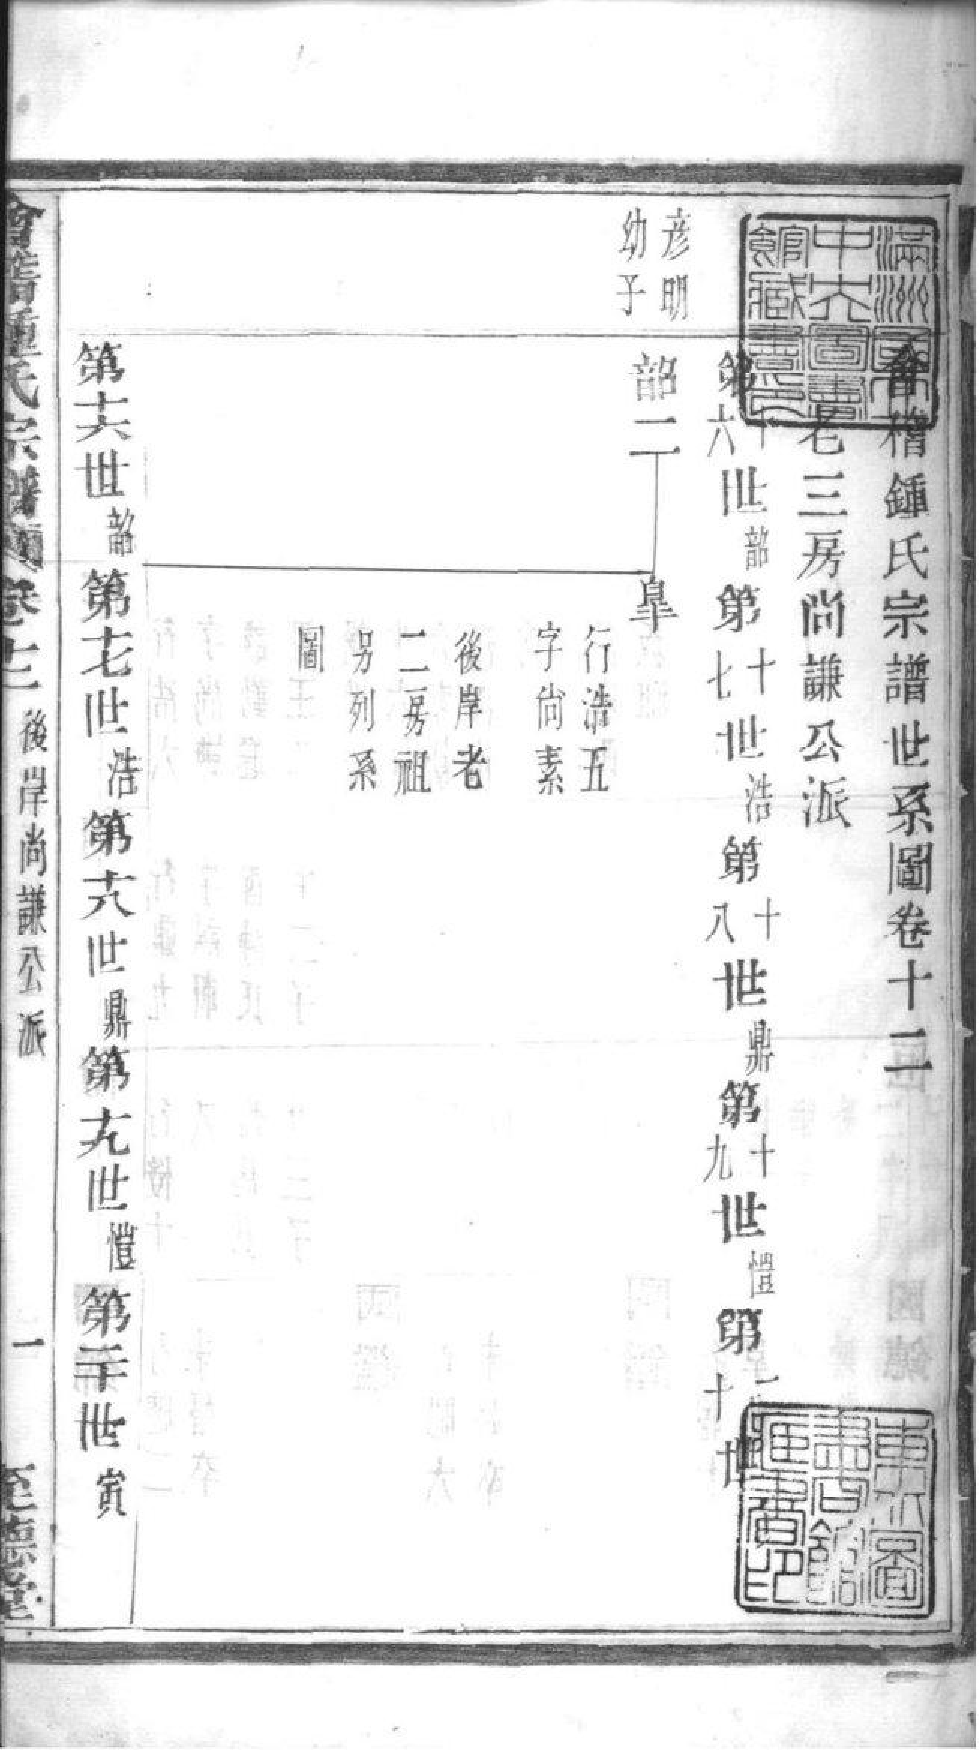 會稽鍾氏宗譜世系圖卷十二
老三房尚謙公派
第十六世韶第十七世浩第十八世鼎第十九世愷第二十世
彦明
幼子
韶二
皐
行浩五
字尚素
後岸老
二房祖
另列系
圖
第十六世韶第十七世浩第十八世鼎第十九世愷第二十世寅
會稽鍾氏宗譜 卷十二 後岸尚謙公派 一 至德堂
滿洲國
中央圖書
館藏書印
東北圖
書館
藏書印